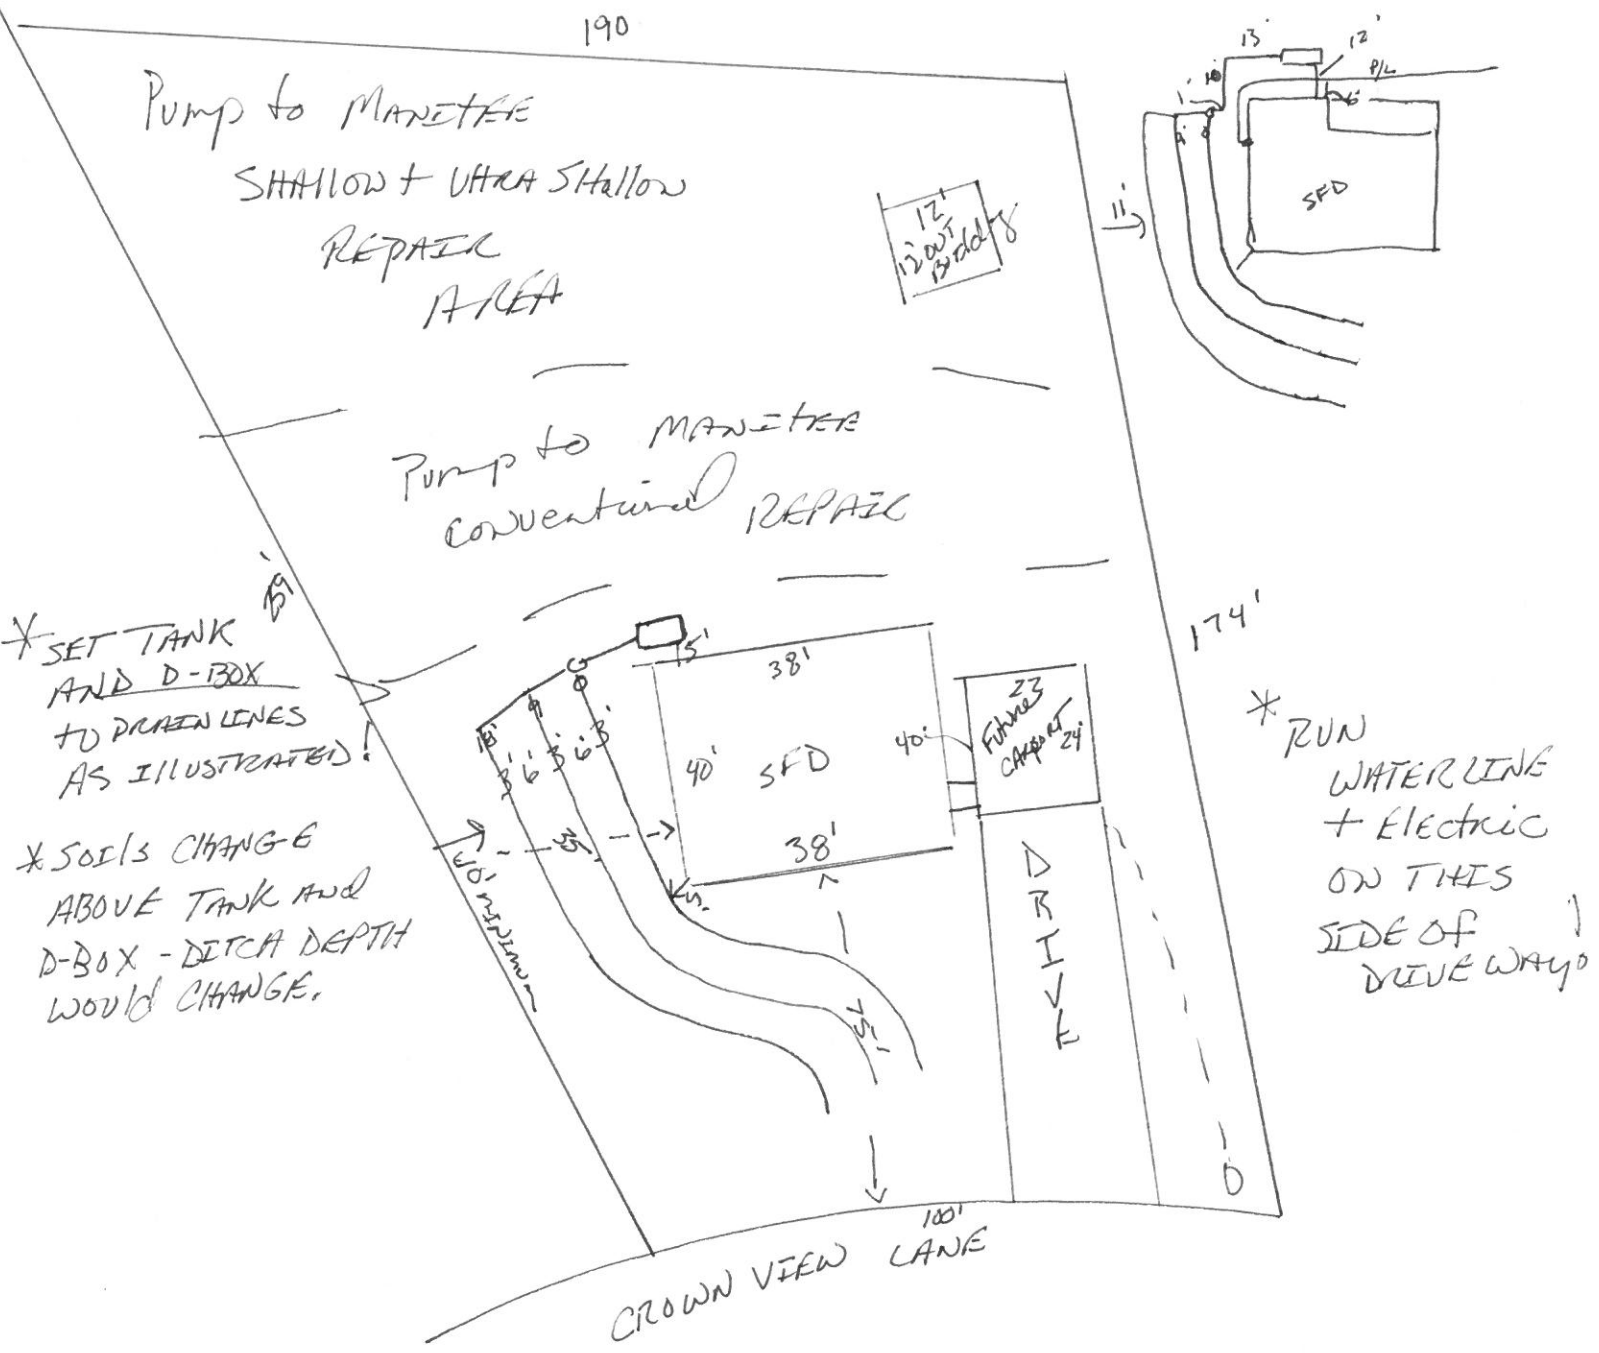 190
Pump to MANITEE
SHALLOW + UltRA SHallow
REPAIR
AREA
12'
12' OUT
Building
13'
12'
P/L
10'
1'
6'
9'
11'
SFD
Pump to MANITEE
CONVENTIONAL REPAIR
259'
174'
* SET TANK
AND D-BOX
TO DRAIN LINES
AS ILLUSTRATED!
* SOILS CHANGE
ABOVE TANK AND
D-BOX - DITCH DEPTH
WOULD CHANGE.
15'
38'
40'
SFD
38'
40'
23
FUTURE
CARPORT
24'
18'
9'
3' 6' 3' 6' 3'
35'
10' MINIMUM
5'
75'
DRIVE
* RUN
WATERLINE
+ Electric
ON THIS
SIDE OF
DRIVEWAY!
100'
CROWN VIEW LANE